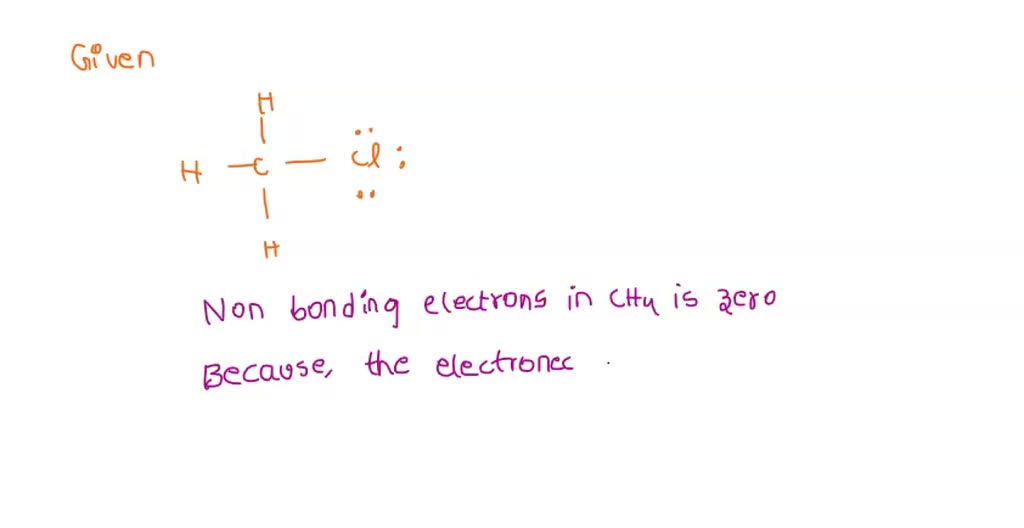 Given
H
H – C – Cl:
H
Non bonding electrons in CH4 is zero
Because, the electronec